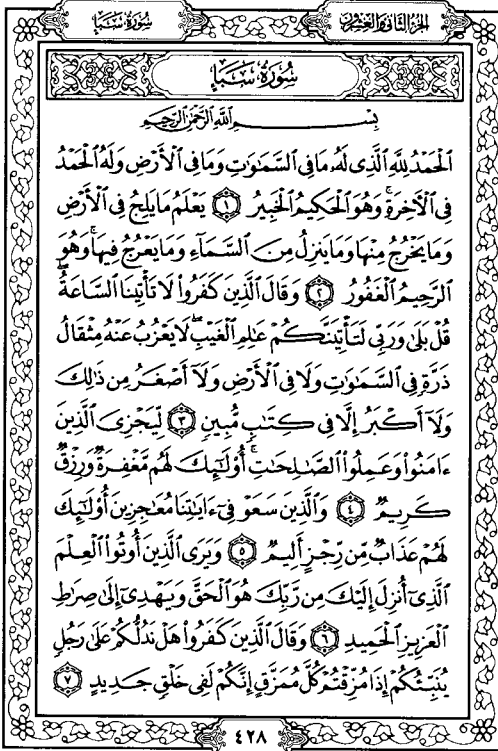 الجُزْءُ الثَّانِي وَالعِشْرُونَ
سُورَةُ سَبَإٍ
سُورَةُ سَبَإٍ
بِسْمِ ٱللَّهِ ٱلرَّحْمَٰنِ ٱلرَّحِيمِ
ٱلْحَمْدُ لِلَّهِ ٱلَّذِى لَهُۥ مَا فِى ٱلسَّمَٰوَٰتِ وَمَا فِى ٱلْأَرْضِ وَلَهُ ٱلْحَمْدُ
فِى ٱلْءَاخِرَةِ ۚ وَهُوَ ٱلْحَكِيمُ ٱلْخَبِيرُ ١ يَعْلَمُ مَا يَلِجُ فِى ٱلْأَرْضِ
وَمَا يَخْرُجُ مِنْهَا وَمَا يَنزِلُ مِنَ ٱلسَّمَآءِ وَمَا يَعْرُجُ فِيهَا ۚ وَهُوَ
ٱلرَّحِيمُ ٱلْغَفُورُ ٢ وَقَالَ ٱلَّذِينَ كَفَرُوا۟ لَا تَأْتِينَا ٱلسَّاعَةُ ۖ
قُلْ بَلَىٰ وَرَبِّى لَتَأْتِيَنَّكُمْ عَٰلِمِ ٱلْغَيْبِ ۖ لَا يَعْزُبُ عَنْهُ مِثْقَالُ
ذَرَّةٍ فِى ٱلسَّمَٰوَٰتِ وَلَا فِى ٱلْأَرْضِ وَلَآ أَصْغَرُ مِن ذَٰلِكَ
وَلَآ أَكْبَرُ إِلَّا فِى كِتَٰبٍ مُّبِينٍ ٣ لِّيَجْزِىَ ٱلَّذِينَ
ءَامَنُوا۟ وَعَمِلُوا۟ ٱلصَّٰلِحَٰتِ ۚ أُو۟لَٰٓئِكَ لَهُم مَّغْفِرَةٌ وَرِزْقٌ
كَرِيمٌ ٤ وَٱلَّذِينَ سَعَوْ فِىٓ ءَايَٰتِنَا مُعَٰجِزِينَ أُو۟لَٰٓئِكَ
لَهُمْ عَذَابٌ مِّن رِّجْزٍ أَلِيمٌ ٥ وَيَرَى ٱلَّذِينَ أُوتُوا۟ ٱلْعِلْمَ
ٱلَّذِىٓ أُنزِلَ إِلَيْكَ مِن رَّبِّكَ هُوَ ٱلْحَقَّ وَيَهْدِىٓ إِلَىٰ صِرَٰطِ
ٱلْعَزِيزِ ٱلْحَمِيدِ ٦ وَقَالَ ٱلَّذِينَ كَفَرُوا۟ هَلْ نَدُلُّكُمْ عَلَىٰ رَجُلٍ
يُنَبِّئُكُمْ إِذَا مُزِّقْتُمْ كُلَّ مُمَزَّقٍ إِنَّكُمْ لَفِى خَلْقٍ جَدِيدٍ ٧
٤٢٨